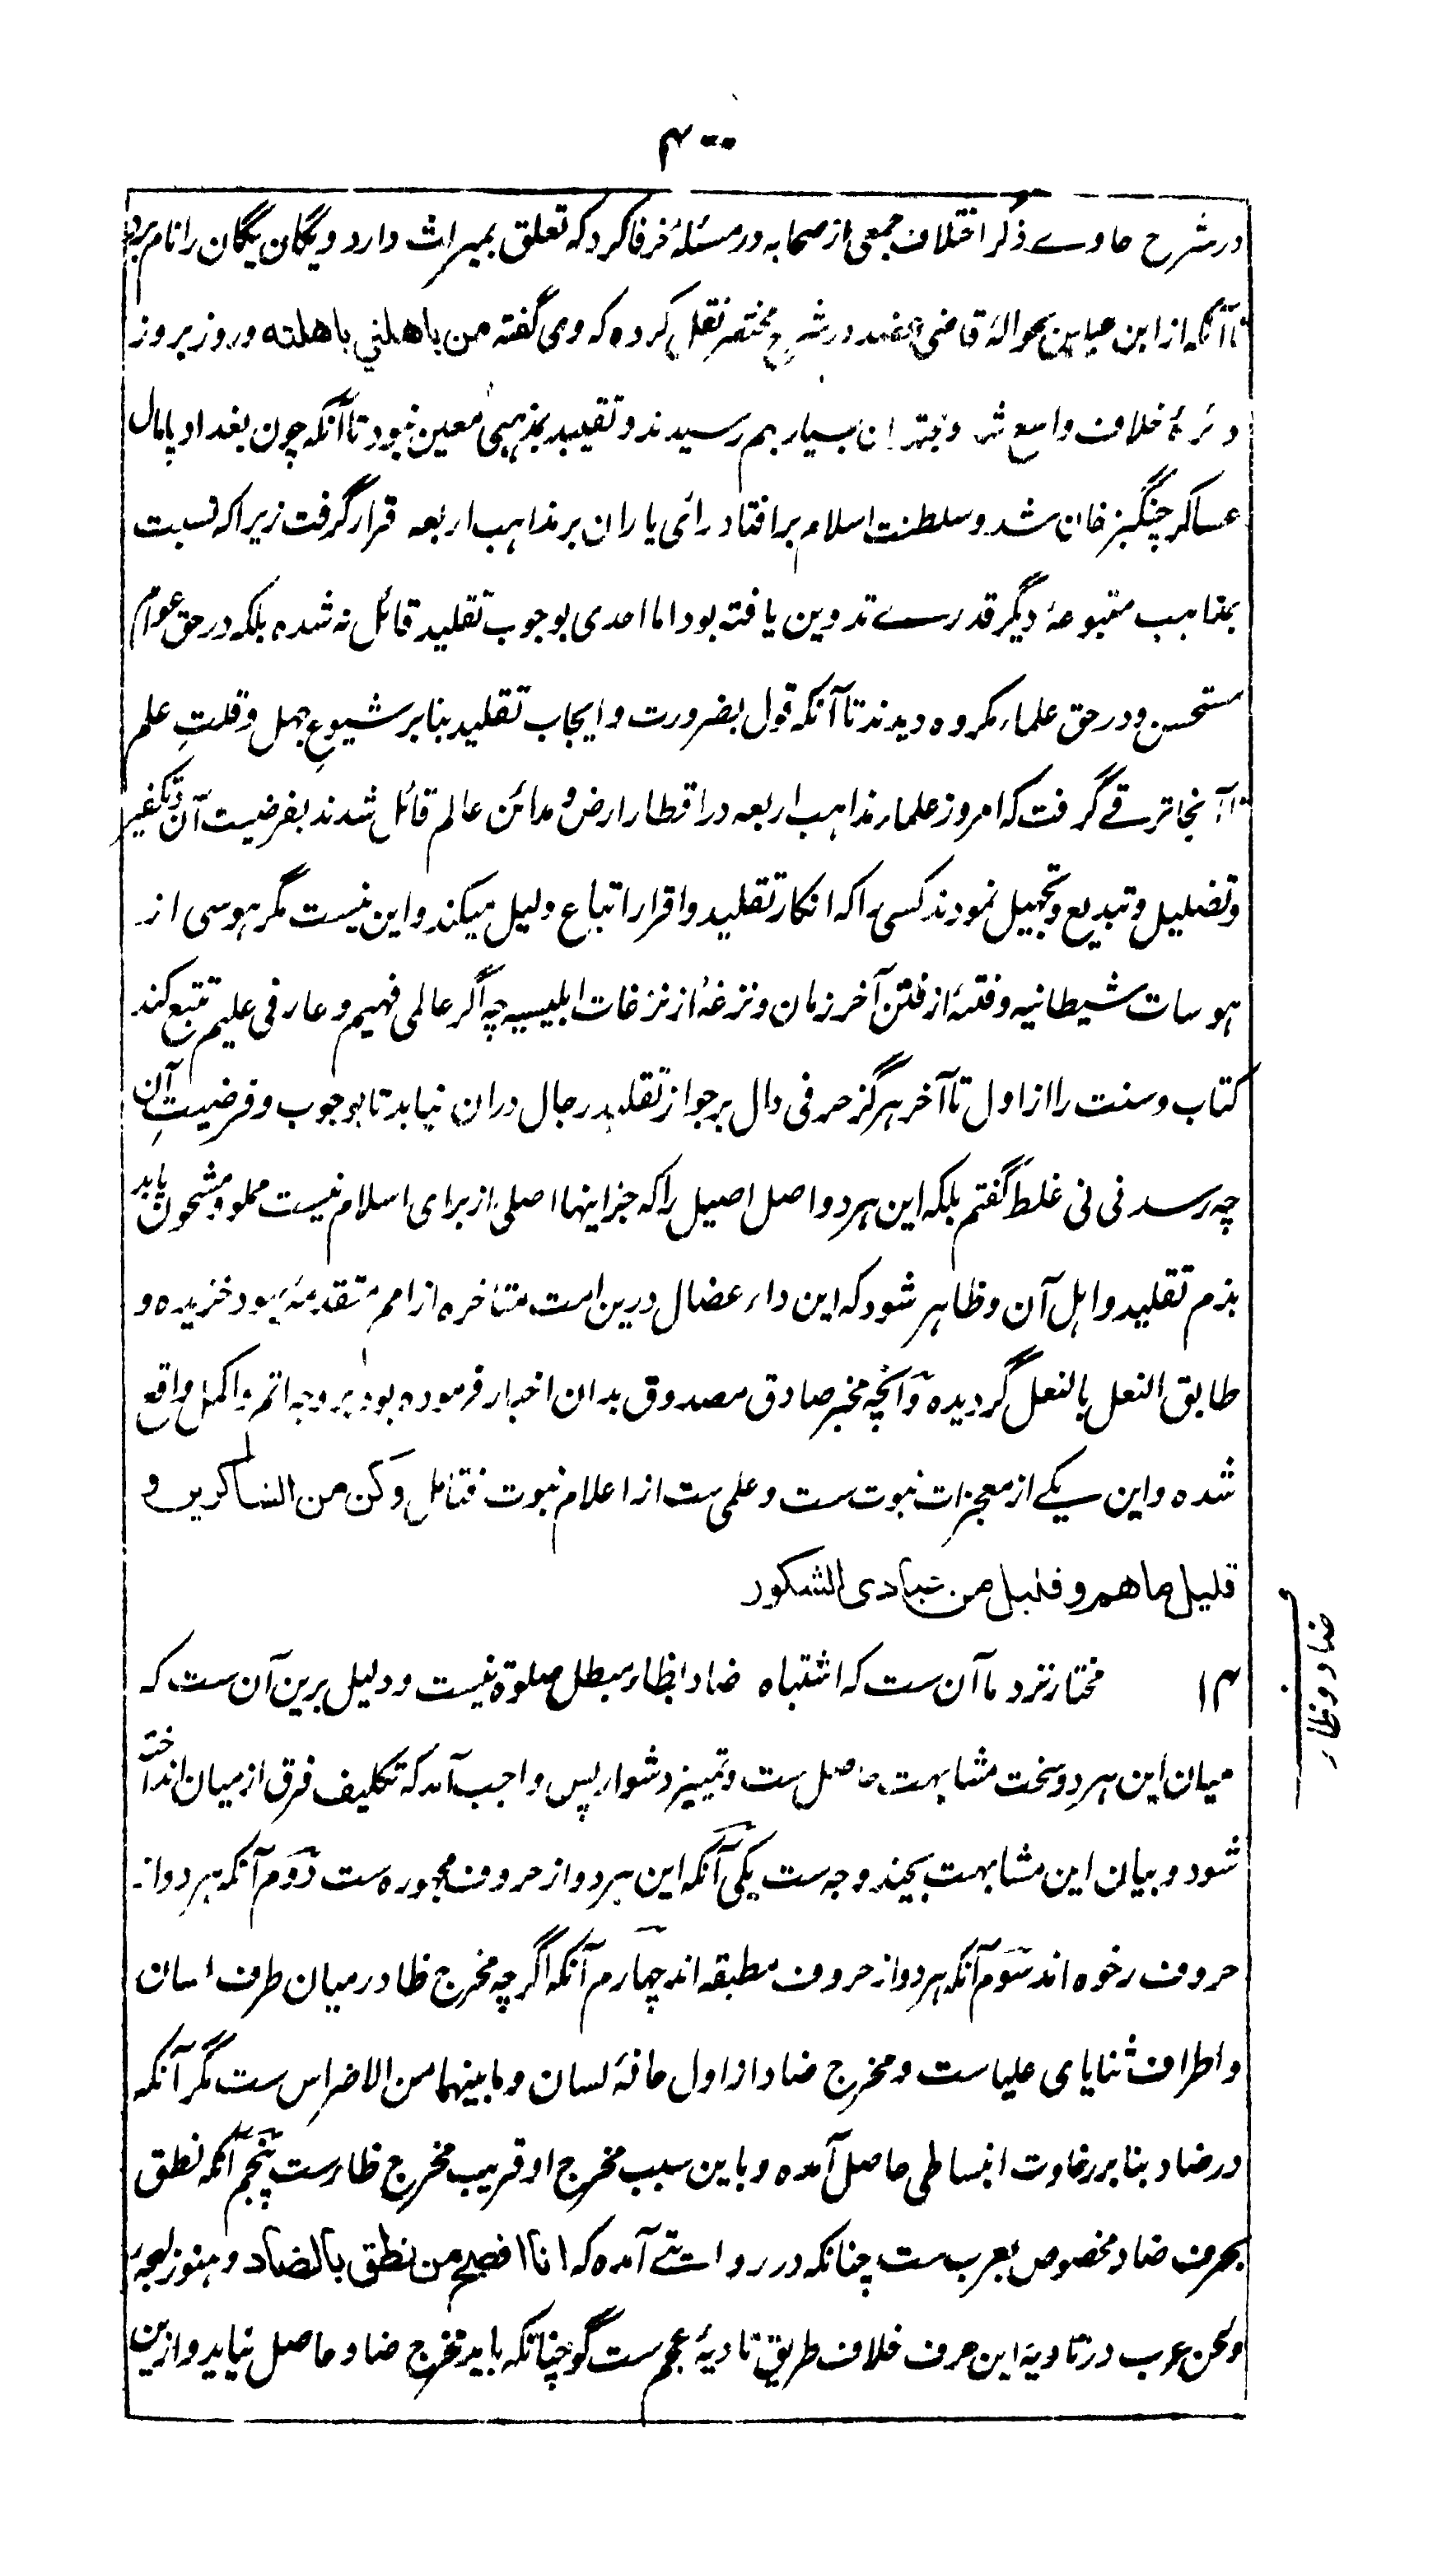 ۴۰۰
در شرح حاوے ذکر اختلاف جمعی از صحابه در مسئلهٔ خرقا کرد که تعلق بمیراث دارد و یگان یگان را نام برد
تا آنکه از ابن عباس بحوالهٔ قاضی عضد در شرح مختصر نقل کرده که وی گفته من باهلني باهلته و روز بروز
دائرهٔ خلاف واسع شد و مجتهدان بسیار بهم رسیدند و تقیید بمذهبی معین نبود تا آنکه چون بغداد پامال
عساکر چنگیز خان شد و سلطنت اسلام بر افتاد رای یاران بر مذاهب اربعه قرار گرفت زیرا که نسبت
بمذاهب متبوعهٔ دیگر قدرے تدوین یافته بود اما احدی بوجوب تقلید قائل نه شده بلکه در حق عوام
مستحسن و در حق علماء مکروه دیدند تا آنکه قول بضرورت و ایجاب تقلید بنابر شیوعِ جهل و قلتِ علم
تا آنجا ترقے گرفت که امروز علماء مذاهب اربعه در اقطار ارض و مدائن عالم قائل شدند بفرضیت آن و تکفیر
و تضلیل و تبدیع و تجهیل نمودند کسی را که انکار تقلید و اقرار اتباع دلیل میکند و این نیست مگر هوسی از
هوسات شیطانیه و فتنهٔ از فتن آخر زمان و نزغهٔ از نزغات ابلیسیه چه اگر عالمی فهیم و عارفی علیم تتبع کند
کتاب و سنت را از اول تا آخر هرگز حرفی دال بر جواز تقلید رجال دران نیابد تا بوجوب و فرضیتِ آن
چه رسد نی نی غلط گفتم بلکه این هر دو اصل اصیل را که جز اینها اصلی از برای اسلام نیست مملو و مشحون یابد
بذم تقلید و اهل آن و ظاهر شود که این داء عضال درین امت متاخره از امم متقدمهٔ یهود خزیده و
طابق النعل بالنعل گردیده و آنچه مخبر صادق مصدوق بدان اخبار فرموده بود بر وجه اتم و اکمل واقع
شده و این یکے از معجزات نبوت ست و علمی ست از اعلام نبوت فتامل وکن من الشاکرین و
قلیل ما هم و قلیل من عبادی الشکور
۱۴ مختار نزد ما آن ست که اشتباه ضاد بظاء مبطل صلوة نیست و دلیل برین آن ست که
ضاد و ظاء
میان این هر دو سخت مشابهت حاصل ست و تمییز دشوار پس واجب آمد که تکلیف فرق از میان انداخته
شود و بیان این مشابهت بچند وجه ست یکی آنکه این هر دو از حروف مجهوره ست دوم آنکه هر دو از
حروف رخوه اند سوم آنکه هر دو از حروف مطبقه اند چهارم آنکه اگرچه مخرج ظا در میان طرف لسان
و اطراف ثنایای علیا ست و مخرج ضاد از اول حافهٔ لسان و ما بینهما من الاضراس ست مگر آنکه
در ضاد بنابر رخاوت انبساطی حاصل آمده و باین سبب مخرج او قریب مخرج ظاء ست پنجم آنکه نطق
بحرف ضاد مخصوص بعرب ست چنانکه در روایتے آمده که انا افصح من نطق بالضاد و هنوز لهجهٔ
و لحن عرب در تادیهٔ این حرف خلاف طریق تادیهٔ عجم ست گو چنانکه باید مخرج ضاد حاصل نیاید و ازین